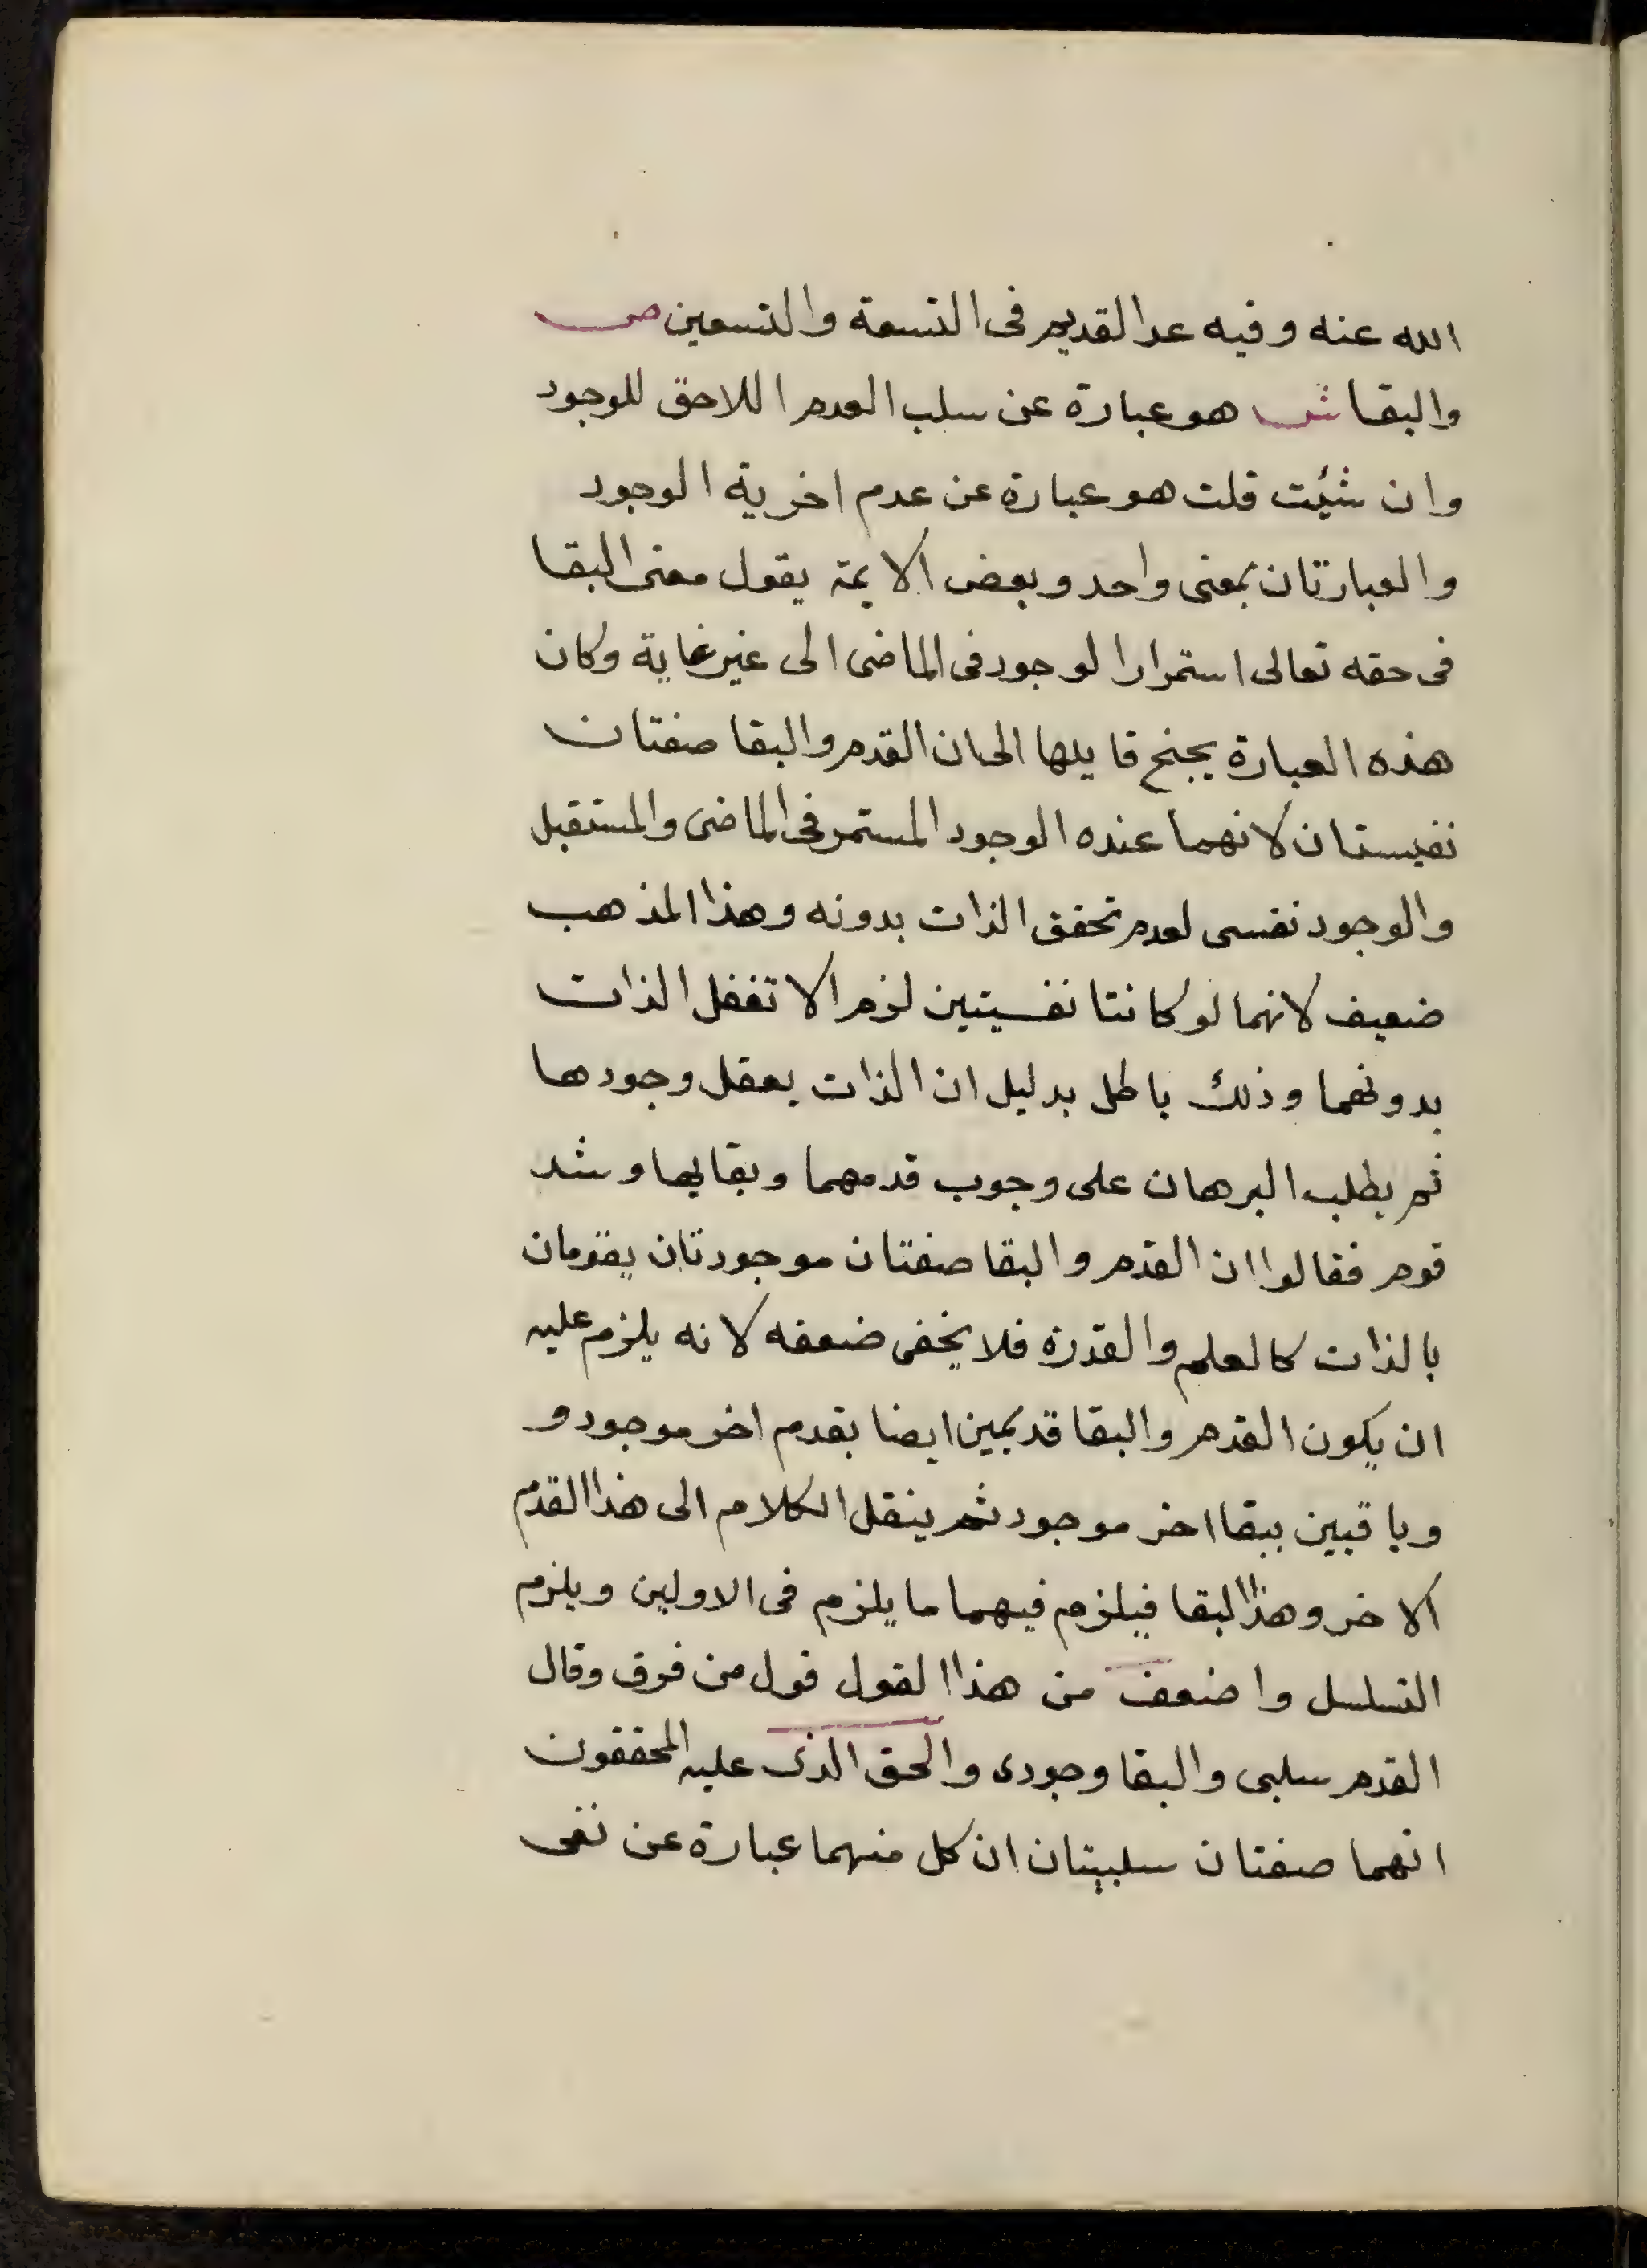 الله عنه وفيه عد القديم فى التسعة والتسعين ص
والبقا ش هو عبارة عن سلب العدم اللاحق للوجود
وان شئت قلت هو عبارة عن عدم اخرية الوجود
والعبارتان بمعنى واحد وبعض الايمة يقول معنى البقا
فى حقه تعالى استمرار الوجود فى الماضى الى غير غاية وكان
هذه العبارة يجنح قايلها الى ان القدم والبقا صفتان
نفيستان لانهما عنده الوجود المستمر فى الماضى والمستقبل
والوجود نفسى لعدم تحقق الذات بدونه وهذا المذهب
ضعيف لانهما لو كانتا نفسيتين لزم الا تعقل الذات
بدونهما وذلك باطل بدليل ان الذات يعقل وجودها
ثم يطلب البرهان على وجوب قدمهما وبقايها وشد
قوم فقالوا ان القدم والبقا صفتان موجودتان يقومان
بالذات كالعلم والقدرة فلا يخفى ضعفه لانه يلزم عليه
ان يكون القدم والبقا قديمين ايضا بقدم اخر موجود و
وباقيين ببقا اخر موجود ثم ينقل الكلام الى هذا القدم
الاخر وهذا البقا فيلزم فيهما ما يلزم فى الاولين ويلزم
التسلسل واضعف من هذا القول قول من فرق وقال
القدم سلبى والبقا وجودى والحق الذى عليه المحققون
انهما صفتان سلبيتان ان كل منهما عبارة عن نفى